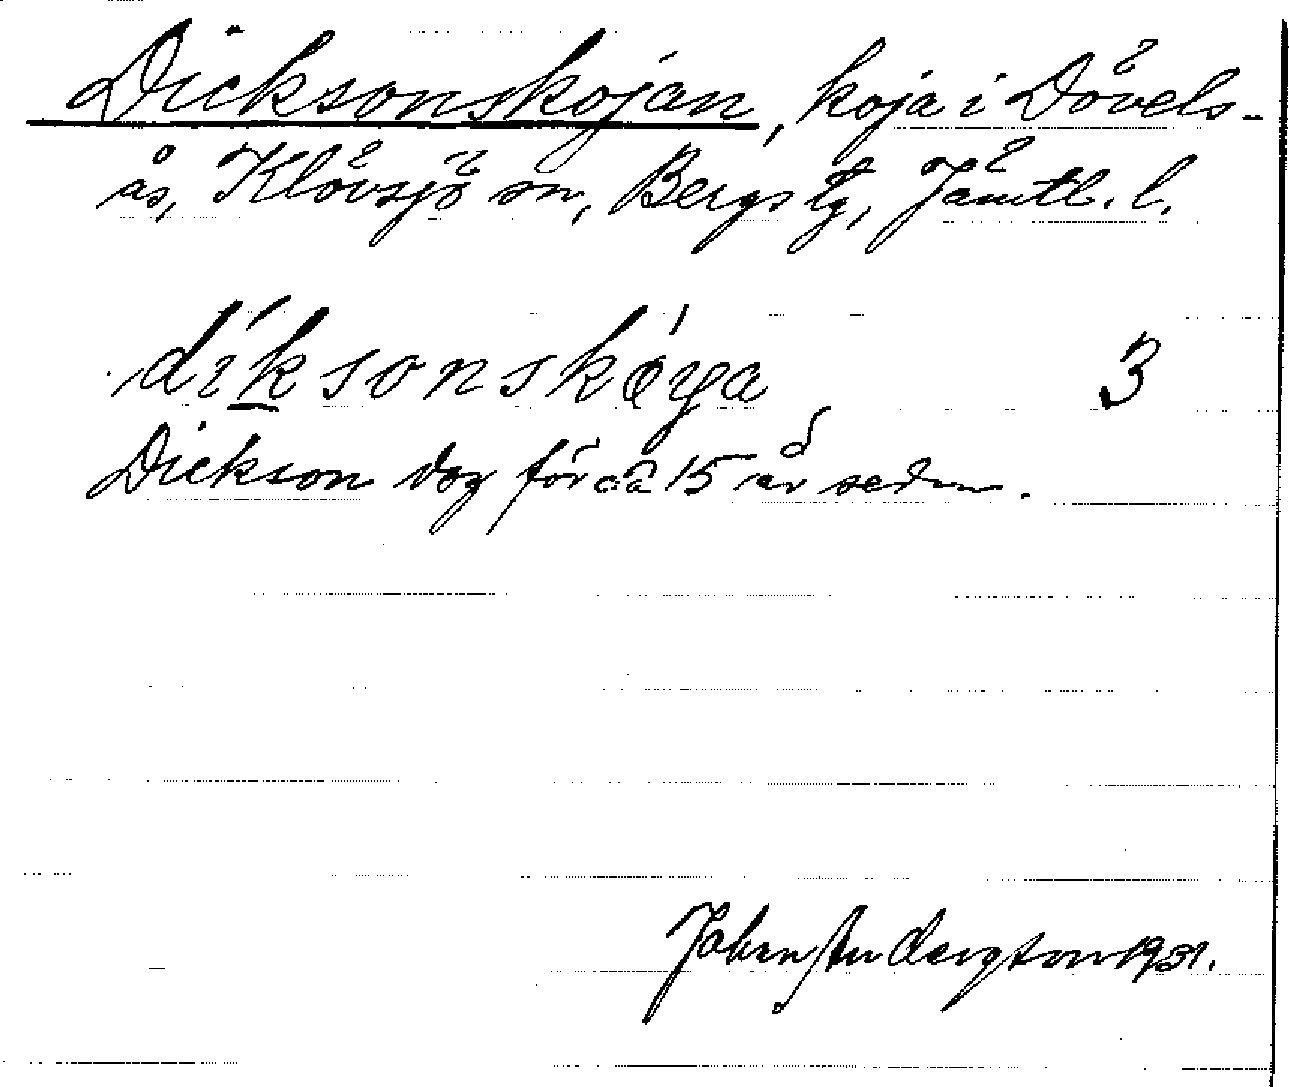 Dicksonskojan, koja i Dövels-
ås, Klövsjö sn, Bergs tg, Jämtl. l.
díksonskóya 3
Dickson dog för ca 15 år sedan.
1931.